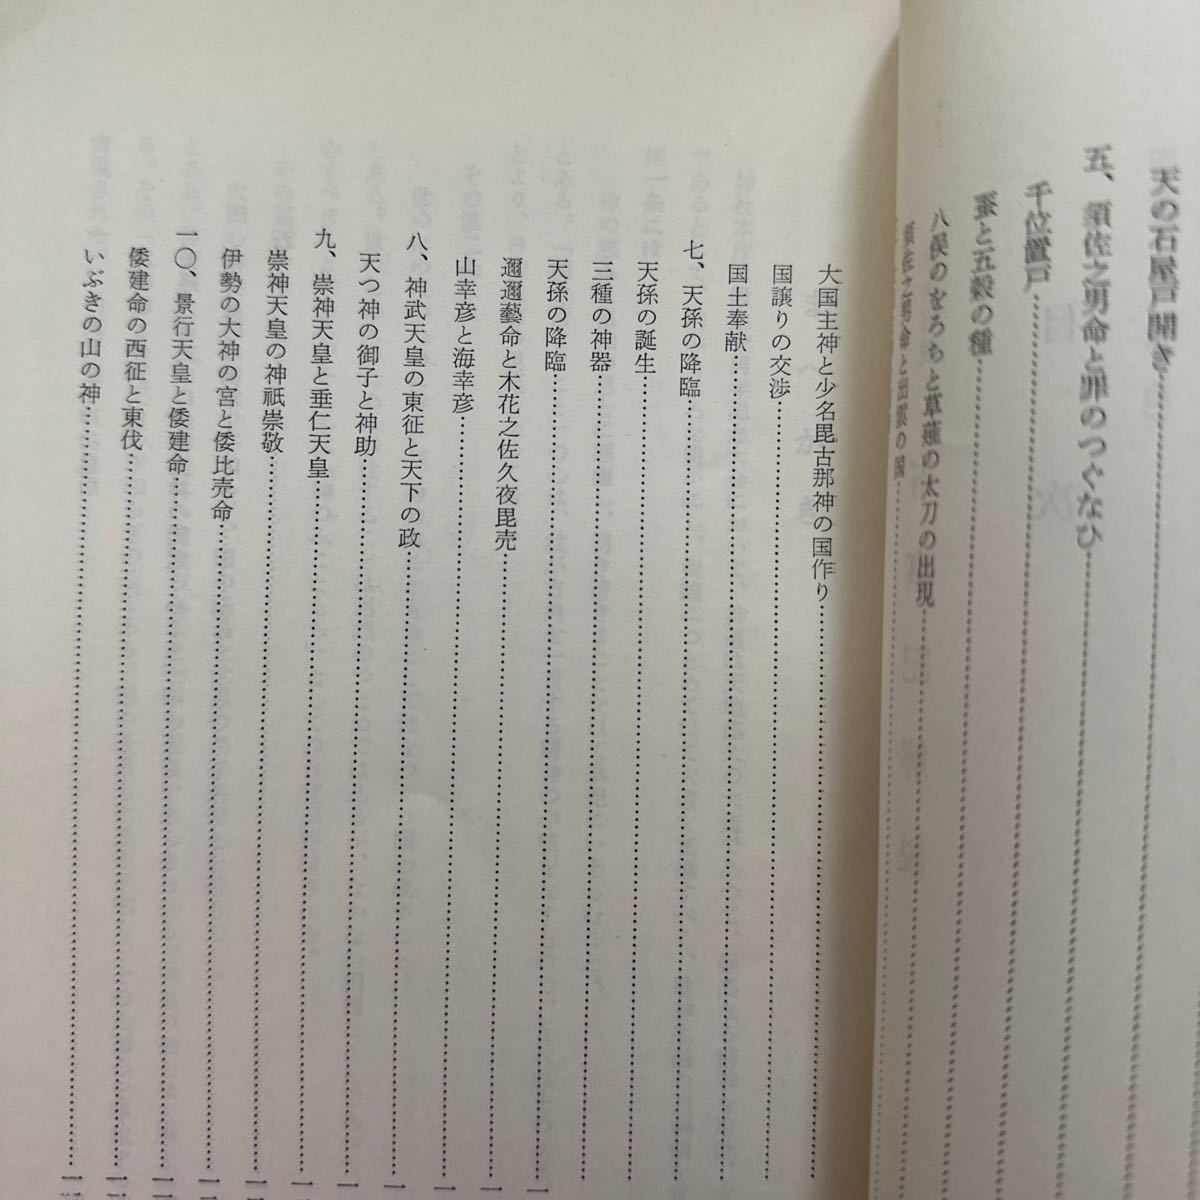 天の石屋戸開き
五、須佐之男命と罪のつぐなひ
千位置戸
蚕と五穀の種
八俣のをろちと草薙の太刀の出現
須佐之男命と出雲の国
大国主神と少名毘古那神の国作り
国譲りの交渉
国土奉献
七、天孫の降臨
天孫の誕生
三種の神器
天孫の降臨
邇邇藝命と木花之佐久夜毘売
山幸彦と海幸彦
八、神武天皇の東征と天下の政
天つ神の御子と神助
九、崇神天皇と垂仁天皇
崇神天皇の神祇崇敬
伊勢の大神の宮と倭比売命
一〇、景行天皇と倭建命
倭建命の西征と東伐
いぶきの山の神